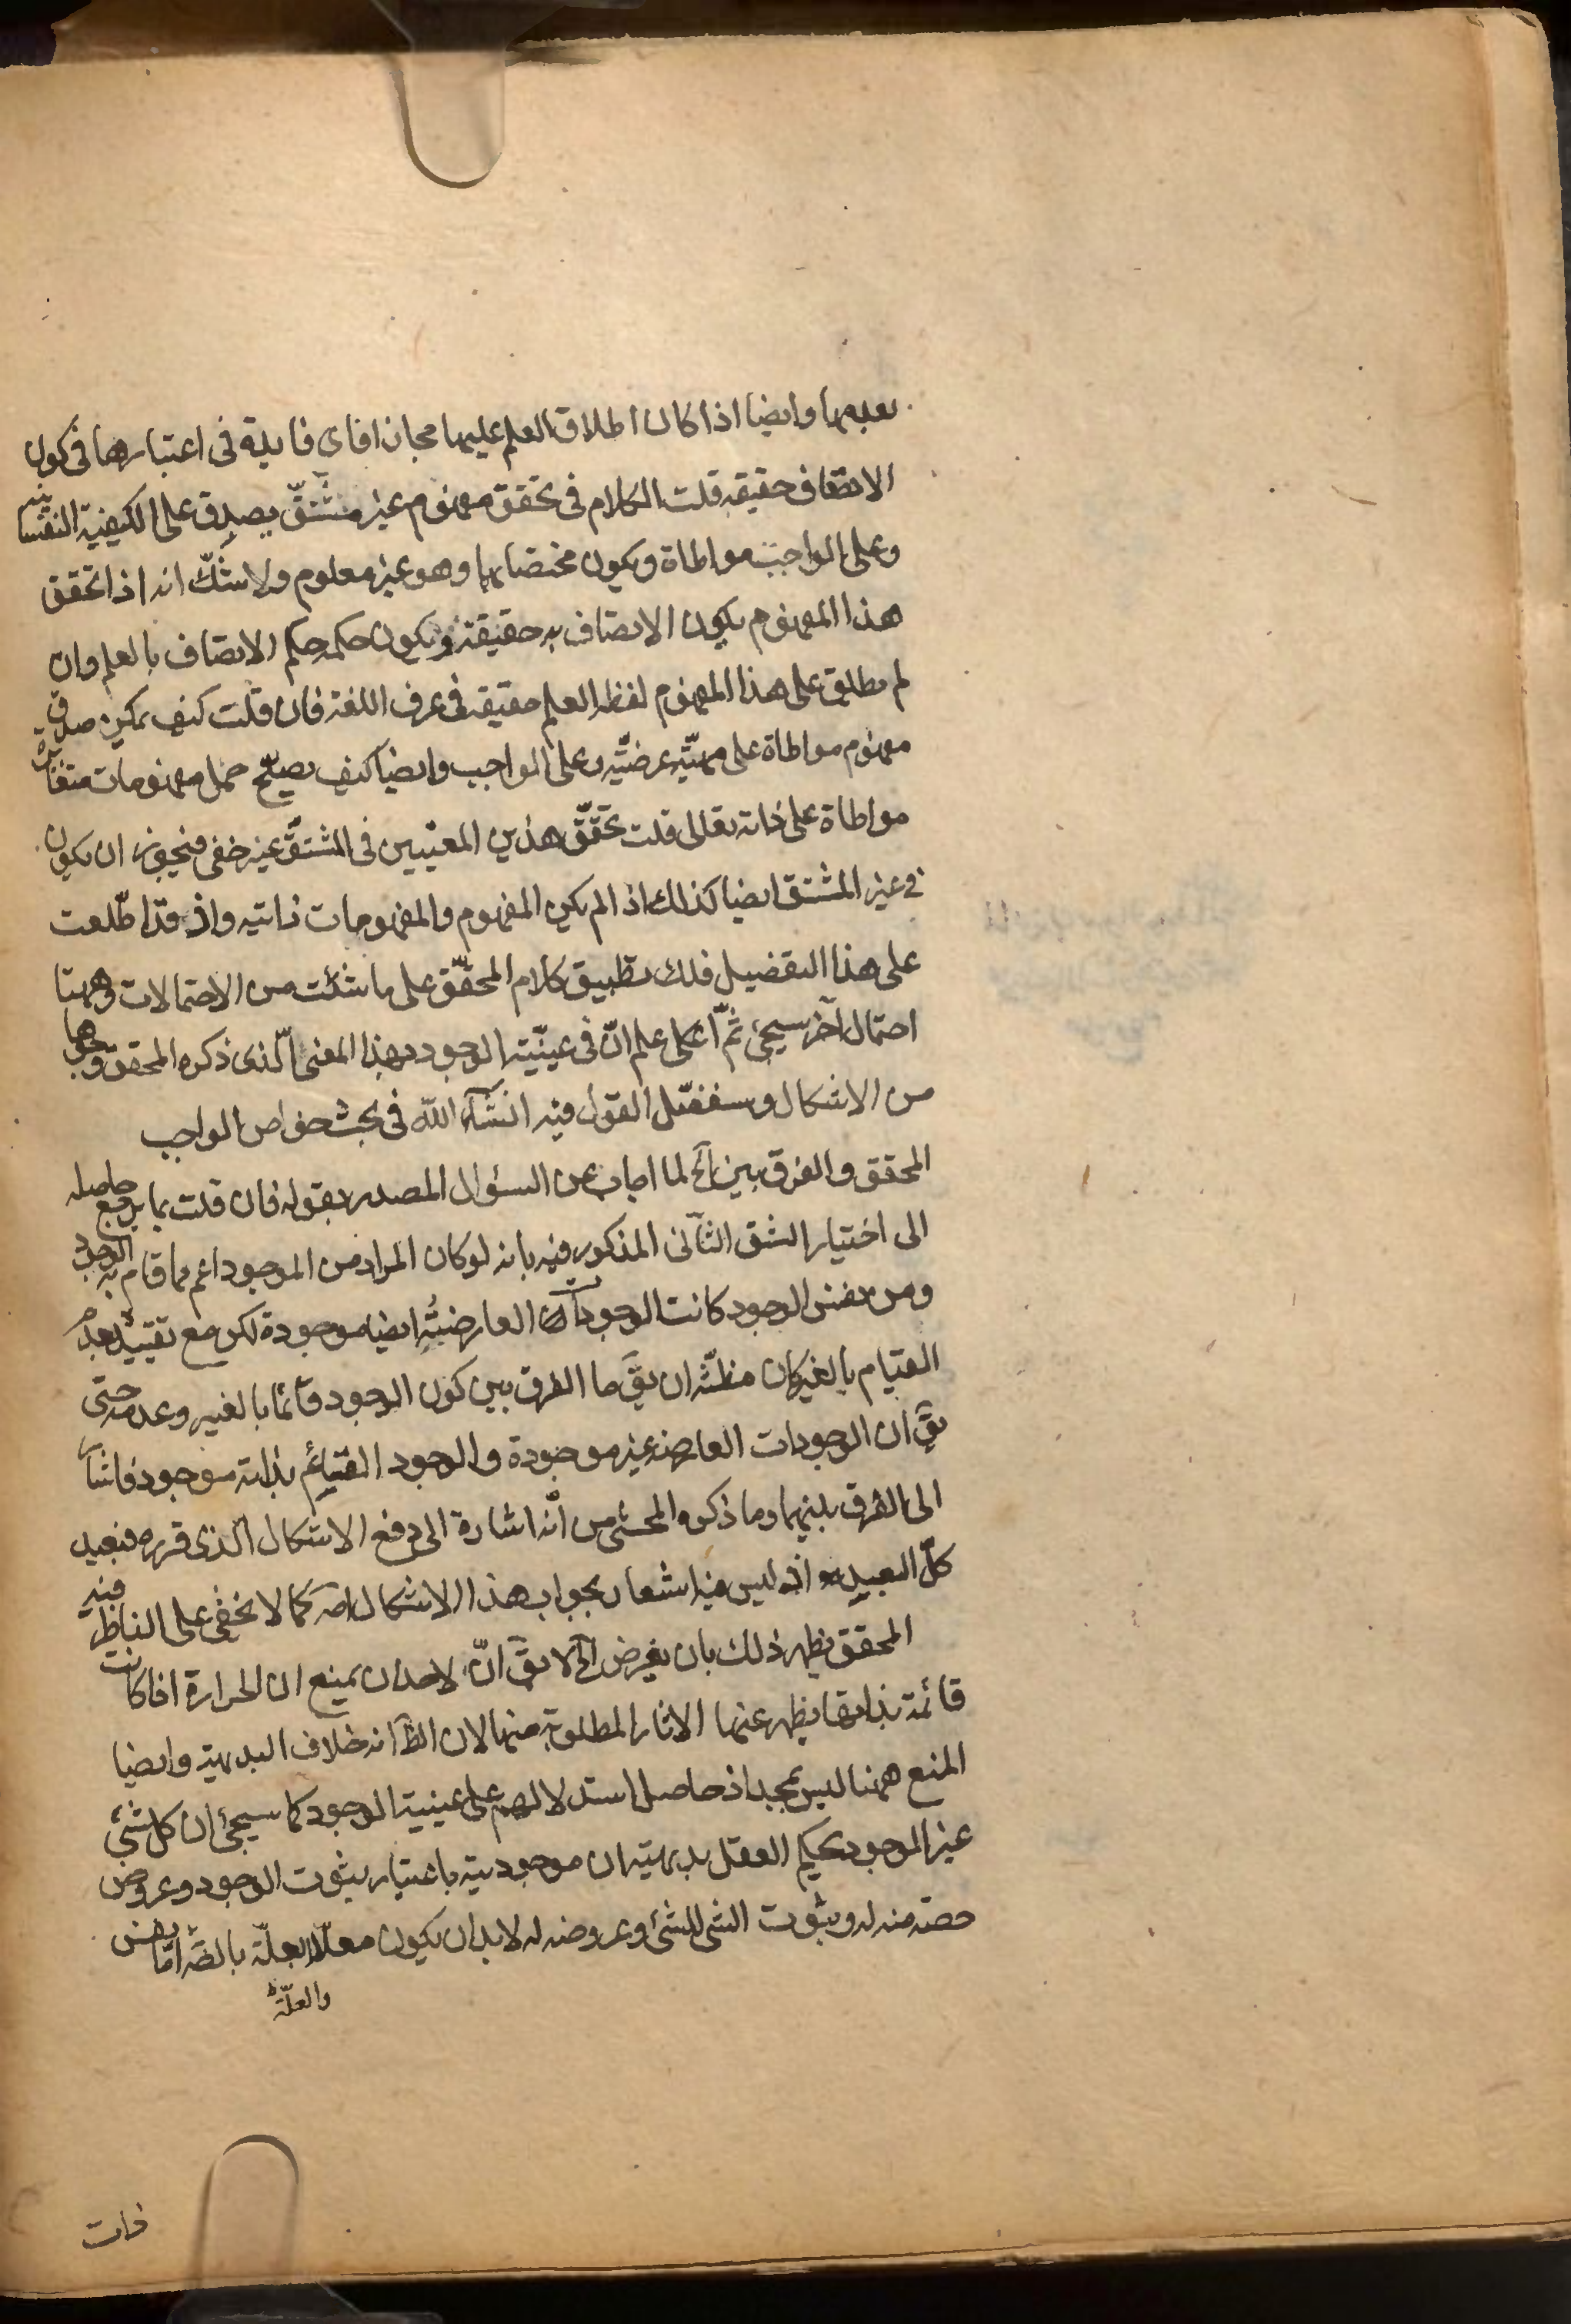 بعدمها وايضا اذا كان اطلاق العلم عليها مجازا فاى فايدة فى اعتبارها فى كون
الاتصاف حقيقه قلت الكلام فى تحقق مفهوم غير مشتقّ يصدق على الكيفية النفسانيه
وعلى الواجب مواطاة ويكون مختصا بهما وهو غير معلوم ولا شكّ انه اذا تحقق
هذا المفهوم يكون الاتصاف به حقيقة ويكون حكمه حكم الاتصاف بالعلم وان
لم يطلق على هذا المفهوم لفظ العلم حقيقه فى عرف اللغة فان قلت كيف يمكن صدق
مفهوم مواطاة على مهيّة عرضيّه وعلى الواجب وايضا كيف يصحّ حمل مفهومات متغايرة
مواطاة على ذاته تعالى قلت تحقّق هذين المعنيين فى المشتقّ غير خفى فيجوز ان يكون
فى غير المشتق ايضا كذلك اذا لم يكن المفهوم والمفهومات ذاتيه واذ قد اطّلعت
على هذا التفصيل فلك تطبيق كلام المحقّق على ما شئت من الاحتمالات وههنا
احتمال آخر سيجئ ثمّ اعلم انّ فى عينيّة الوجود بهذا المعنى الّذى ذكره المحقق وجوها
من الاشكال وسنفصّل القول فيه انشاء الله فى بحث خواص الواجب
المحقق والفرق بين الخ لما اجاب عن السئوال المصدر بقوله فان قلت بما يرجع حاصله
الى اختيار الشق الثانى المذكور فيه بانه لو كان المراد من الموجود اعم مما قام به الوجود
ومن نفس الوجود كانت الوجودات العارضيّة ايضا موجودة لكن مع تقييده بعدم
القيام بالغير كان مظنّة ان يقَ ما الفرق بين كون الوجود قائما بالغير وعدمه حتى
يقَ ان الوجودات العارضه غير موجودة والوجود القائم بذاته موجود فاشار
الى الفرق بينهما وما ذكره المحشى من انّه اشارة الى دفع الاشكال الذى قرره فبعيد
كلّ البعيد اذ ليس فيه اشعار بجواب هذا الاشكال اصه كما لا يخفى على الناظر فيه
المحقق يظهر ذلك بان يفرض الخ لا يقَ انّ لاحد ان يمنع ان الحرارة اذا كانت
قائمة بذاتها يظهر عنها الاثار المطلوبة منها لان الظَ انه خلاف البديهة وايضا
المنع ههنا ليس بمجد اذ حاصل استدلالهم على عينية الوجود كما سيجئ ان كل شئ
غير الموجود يحكم العقل بديهة ان موجوديته باعتبار ثبوت الوجود وعروض
حصه منه له وثبوت الشى للشئ وعروضه له لا بد ان يكون معلّلا بعلّة بالضَه امّا نفس
والعلّة
ذات